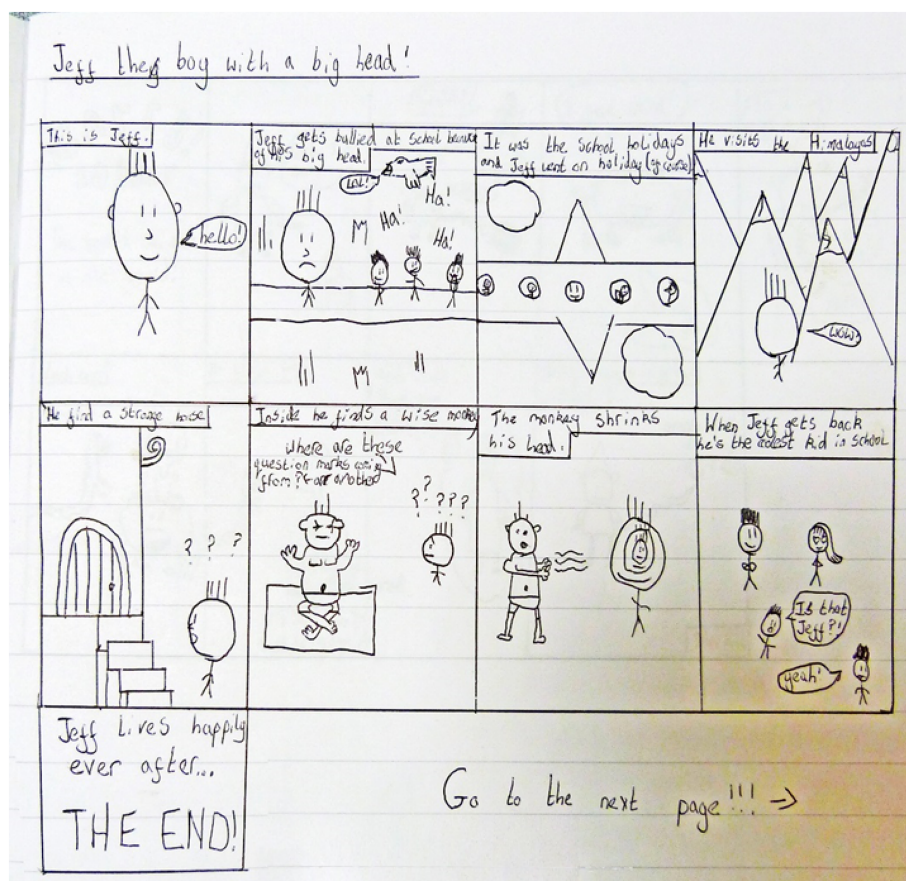 Jeff the boy with a big head!
This is Jeff.
hello!
Jeff gets bullied at school because
of his big head.
LOL!
Ha!
Ha!
Ha!
It was the school holidays
and Jeff went on holiday (of course)
He visits the Himalayas
WOW!
He find a strange house
? ? ?
Inside he finds a wise monkey
Where are these
question marks coming
from?
? ? ? ? ?
The monkey shrinks
his head.
When Jeff gets back
he's the coolest kid in school
Is that
Jeff?!
yeah!
Jeff Lives happily
ever after...
THE END!
Go to the next page!!! →